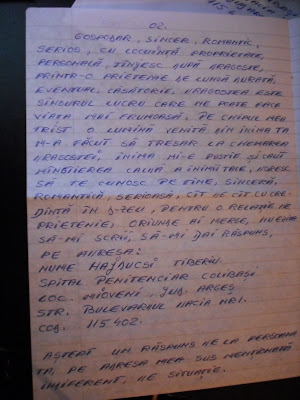 02.
GOSPODAR, SINCER, ROMANTIC,
SERIOS, CU LOCUINȚĂ PROPRIETATE
PERSONALĂ, TÎNJESC DUPĂ DRAGOSTE,
PRINTR-O PRIETENIE DE LUNGĂ DURATĂ,
EVENTUAL CĂSĂTORIE. DRAGOSTEA ESTE
SINGURUL LUCRU CARE NE POATE FACE
VIAȚA MAI FRUMOASĂ. PE CHIPUL MEU
TRIST O LUMINĂ VENITĂ DIN INIMA TA
M-A FĂCUT SĂ TRESAR LA CHEMAREA
DRAGOSTEI, INIMA MI-E PUSTIE ȘI CAUT
MÎNGÎIEREA CALDĂ A INIMII TALE, DORESC
SĂ TE CUNOSC PE TINE, SINCERĂ,
ROMANTICĂ, SERIOASĂ, CÎT DE CÎT CU CRE-
DINȚĂ ÎN D-ZEU, PENTRU O RELAȚIE DE
PRIETENIE, ORIUNDE AI MERGE, NU EZITA
SĂ-MI SCRII, SĂ-MI DAI RĂSPUNS,
PE ADRESA:
NUME HAJDUCSI TIBERIU.
SPITAL PENITENCIAR COLIBAȘI
LOC. MIOVENI, JUD. ARGEȘ
STR. BULEVARDUL DACIA NR1.
COD. 115.402.
AȘTEPT UN RĂSPUNS DE LA PERSOANA
TA, PE ADRESA MEA SUS MENȚIONATĂ
INDIFERENT, DE SITUAȚIE.